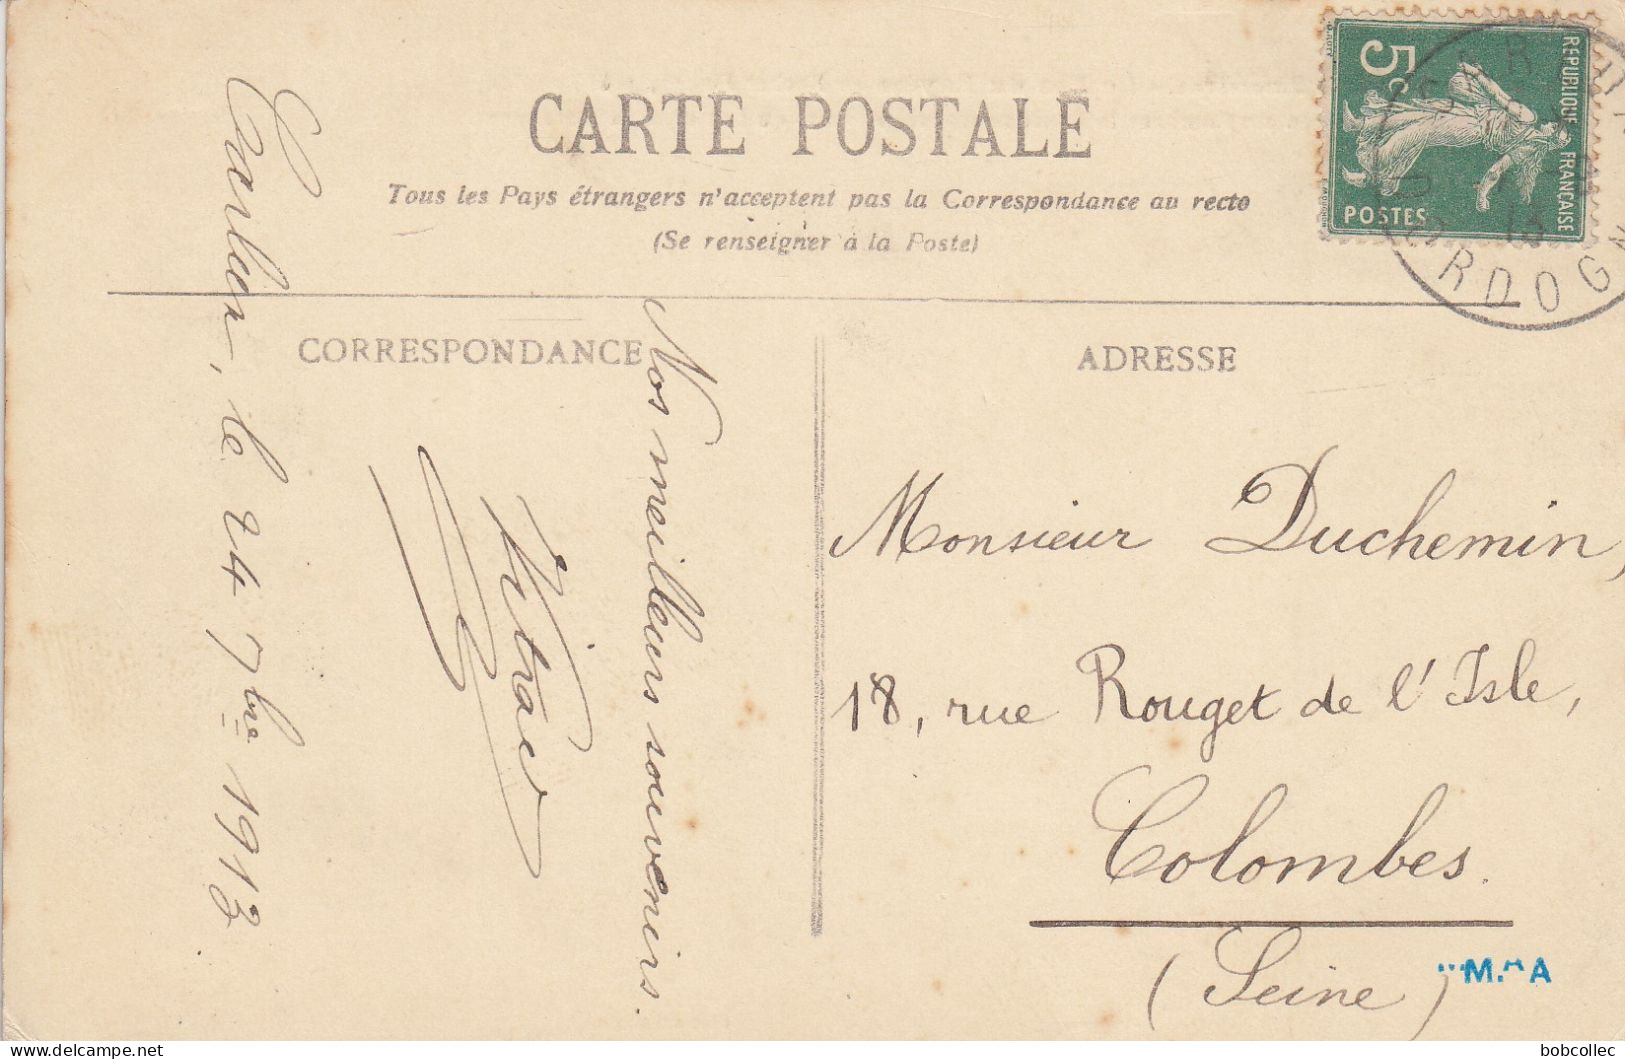 CARTE POSTALE
Tous les Pays étrangers n'acceptent pas la Correspondance au recto
(Se renseigner à la Poste)
CORRESPONDANCE
ADRESSE
5c
REPUBLIQUE FRANÇAISE
POSTES
RDOGN
Carlux, le 24 7bre 1913
Nos meilleurs souvenirs.
Vitrac
Monsieur Duchemin,
18, rue Rouget de l'Isle,
Colombes.
(Seine)
delcampe.net
bobcollec